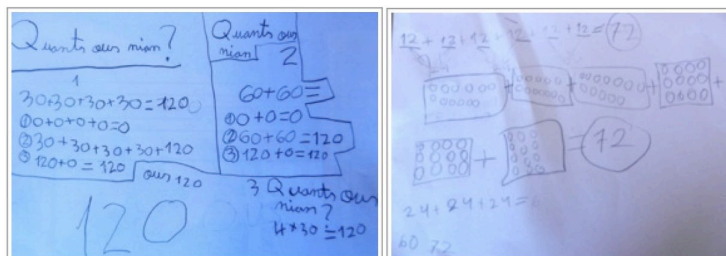 Quants ous
nian?
1
30+30+30+30=120
① 0+0+0+0=0
② 30+30+30+30+120
③ 120+0=120
ous 120
120
Quants ous
nian
2
60+60=
① 0+0=0
② 60+60=120
③ 120+0=120
3 Quants ous
nian?
4×30=120
12+12+12+12+12+12=72
+
+
=72
24+24+24=
60 72